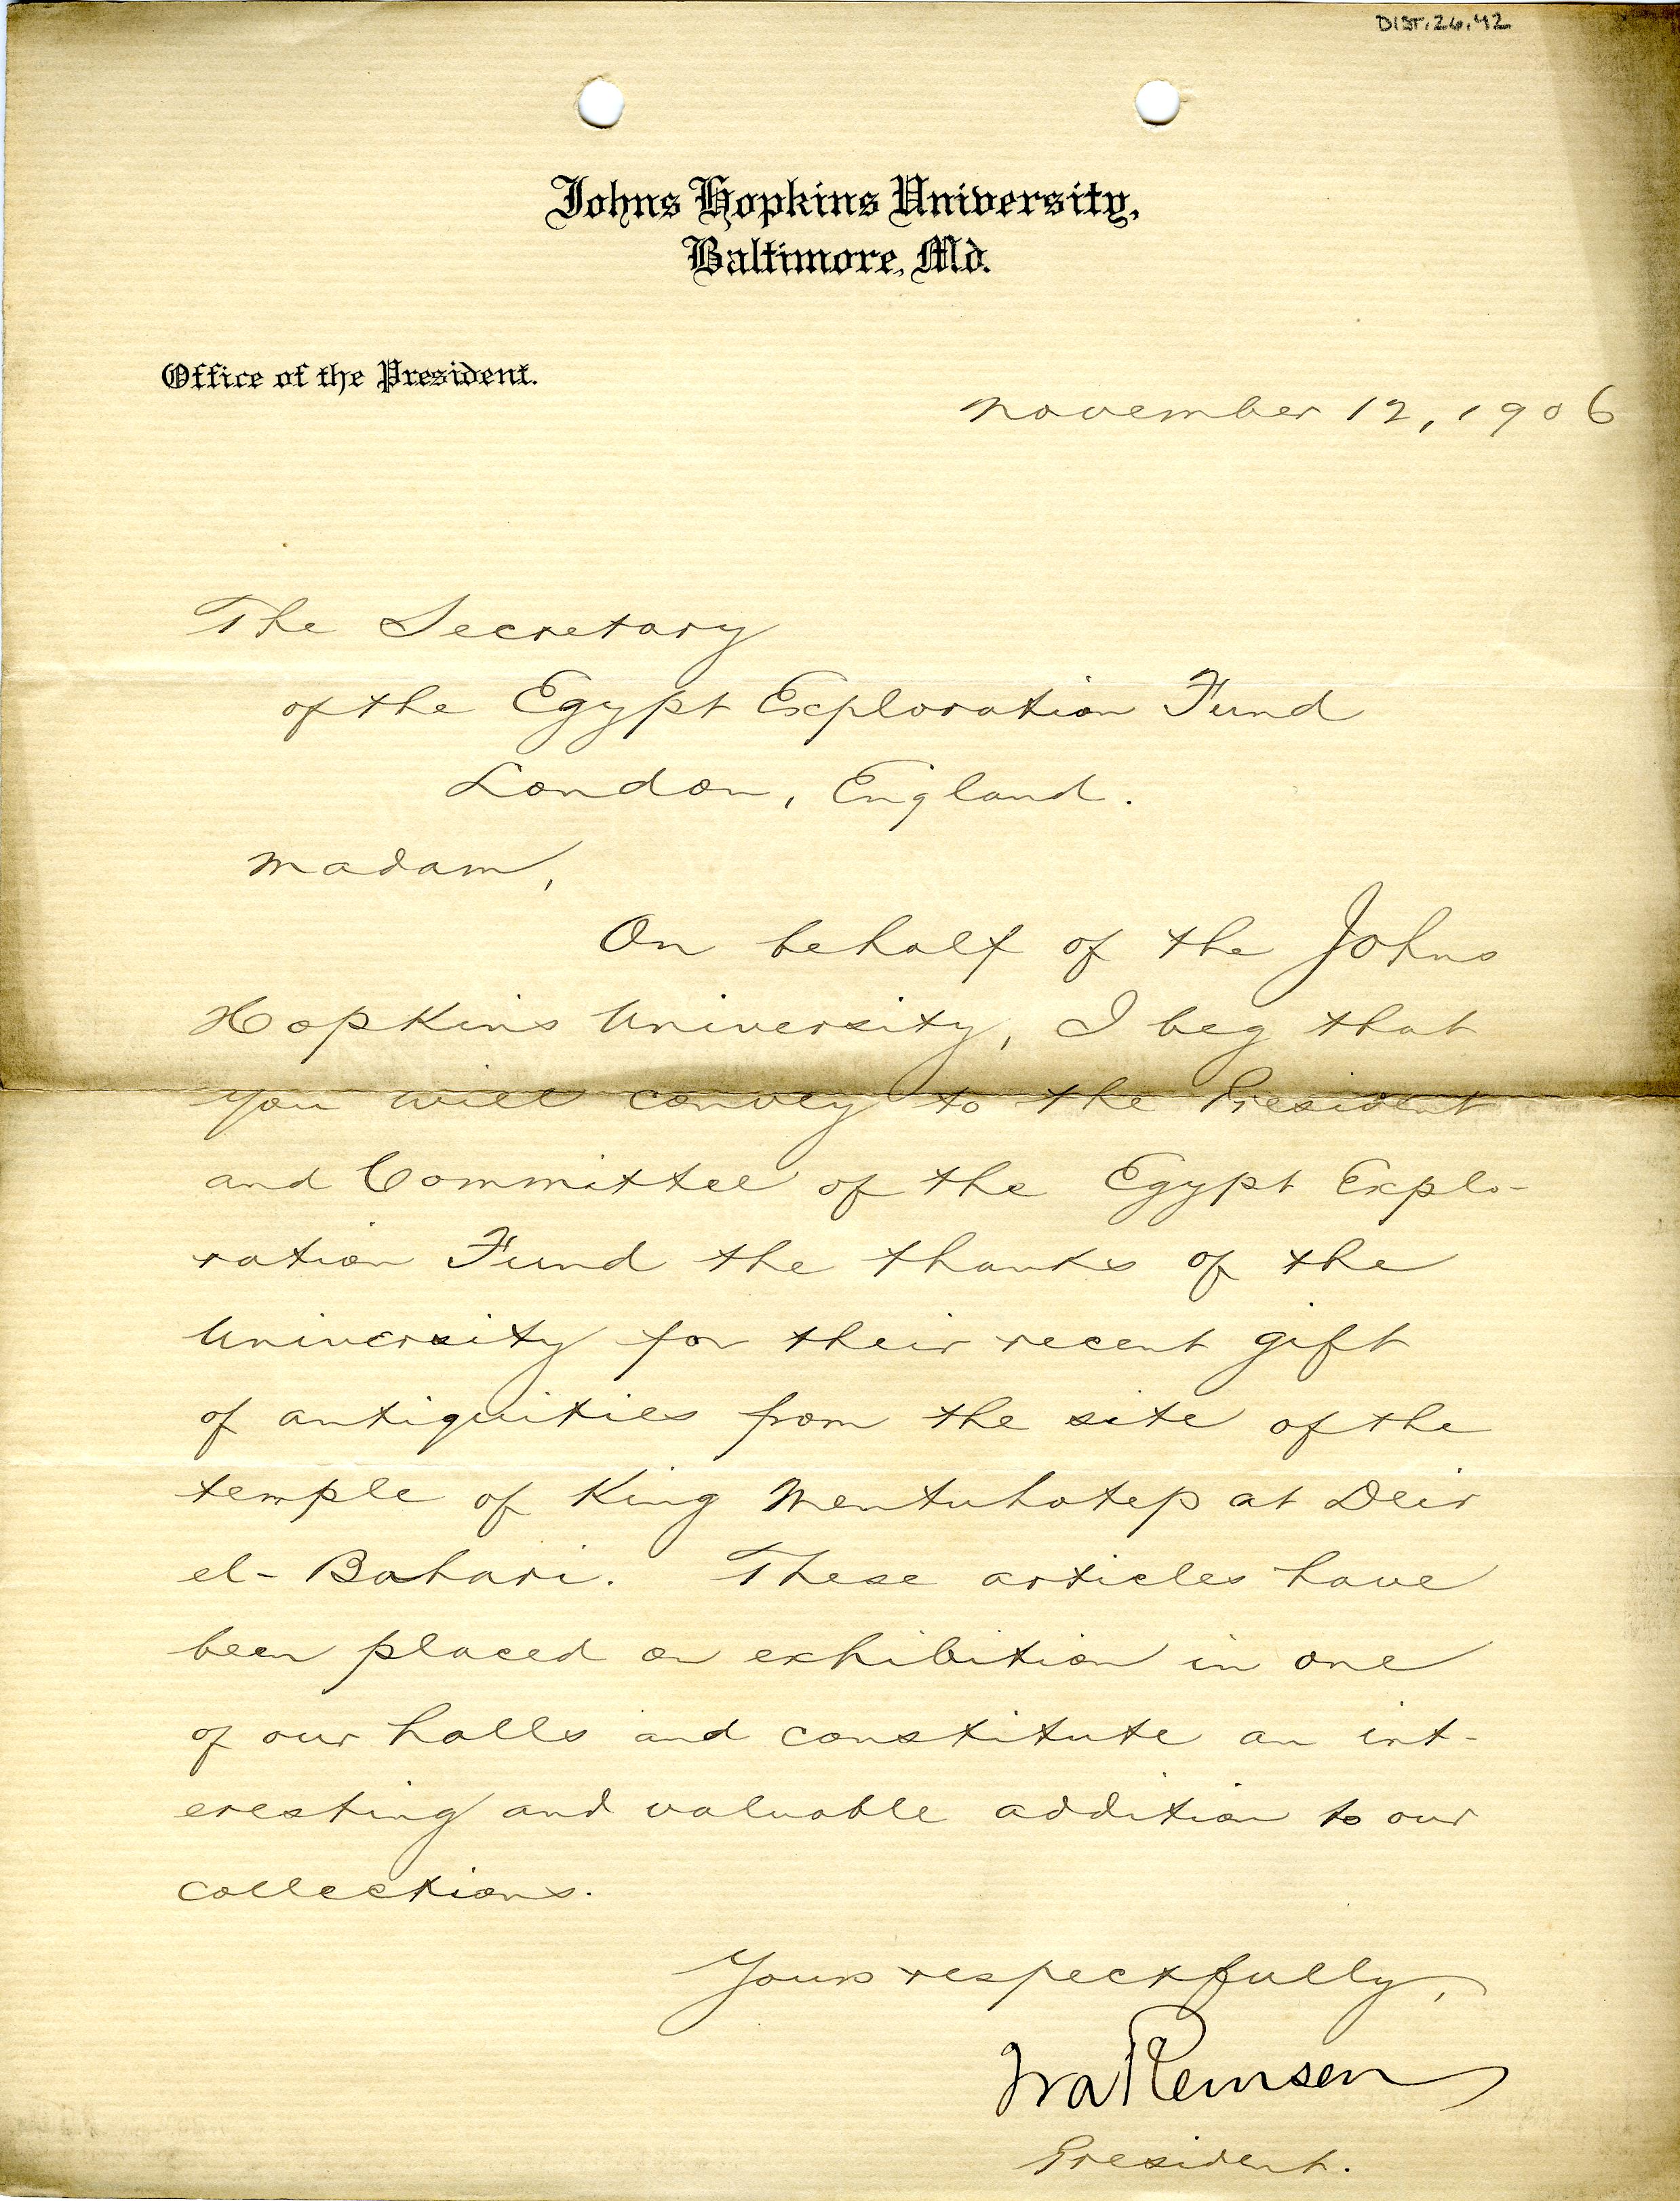 DIST.26.42
Johns Hopkins University,
Baltimore, Md.
Office of the President.
November 12, 1906
The Secretary
of the Egypt Exploration Fund
London, England.
Madam,
On behalf of the Johns
Hopkins University, I beg that
you will convey to the President
and Committee of the Egypt Explo-
ration Fund the thanks of the
University for their recent gift
of antiquities from the site of the
temple of King Mentuhotep at Deir
el-Bahari. These articles have
been placed on exhibition in one
of our halls and constitute an int-
eresting and valuable addition to our
collections.
Yours respectfully,
Ira Remsen
President.